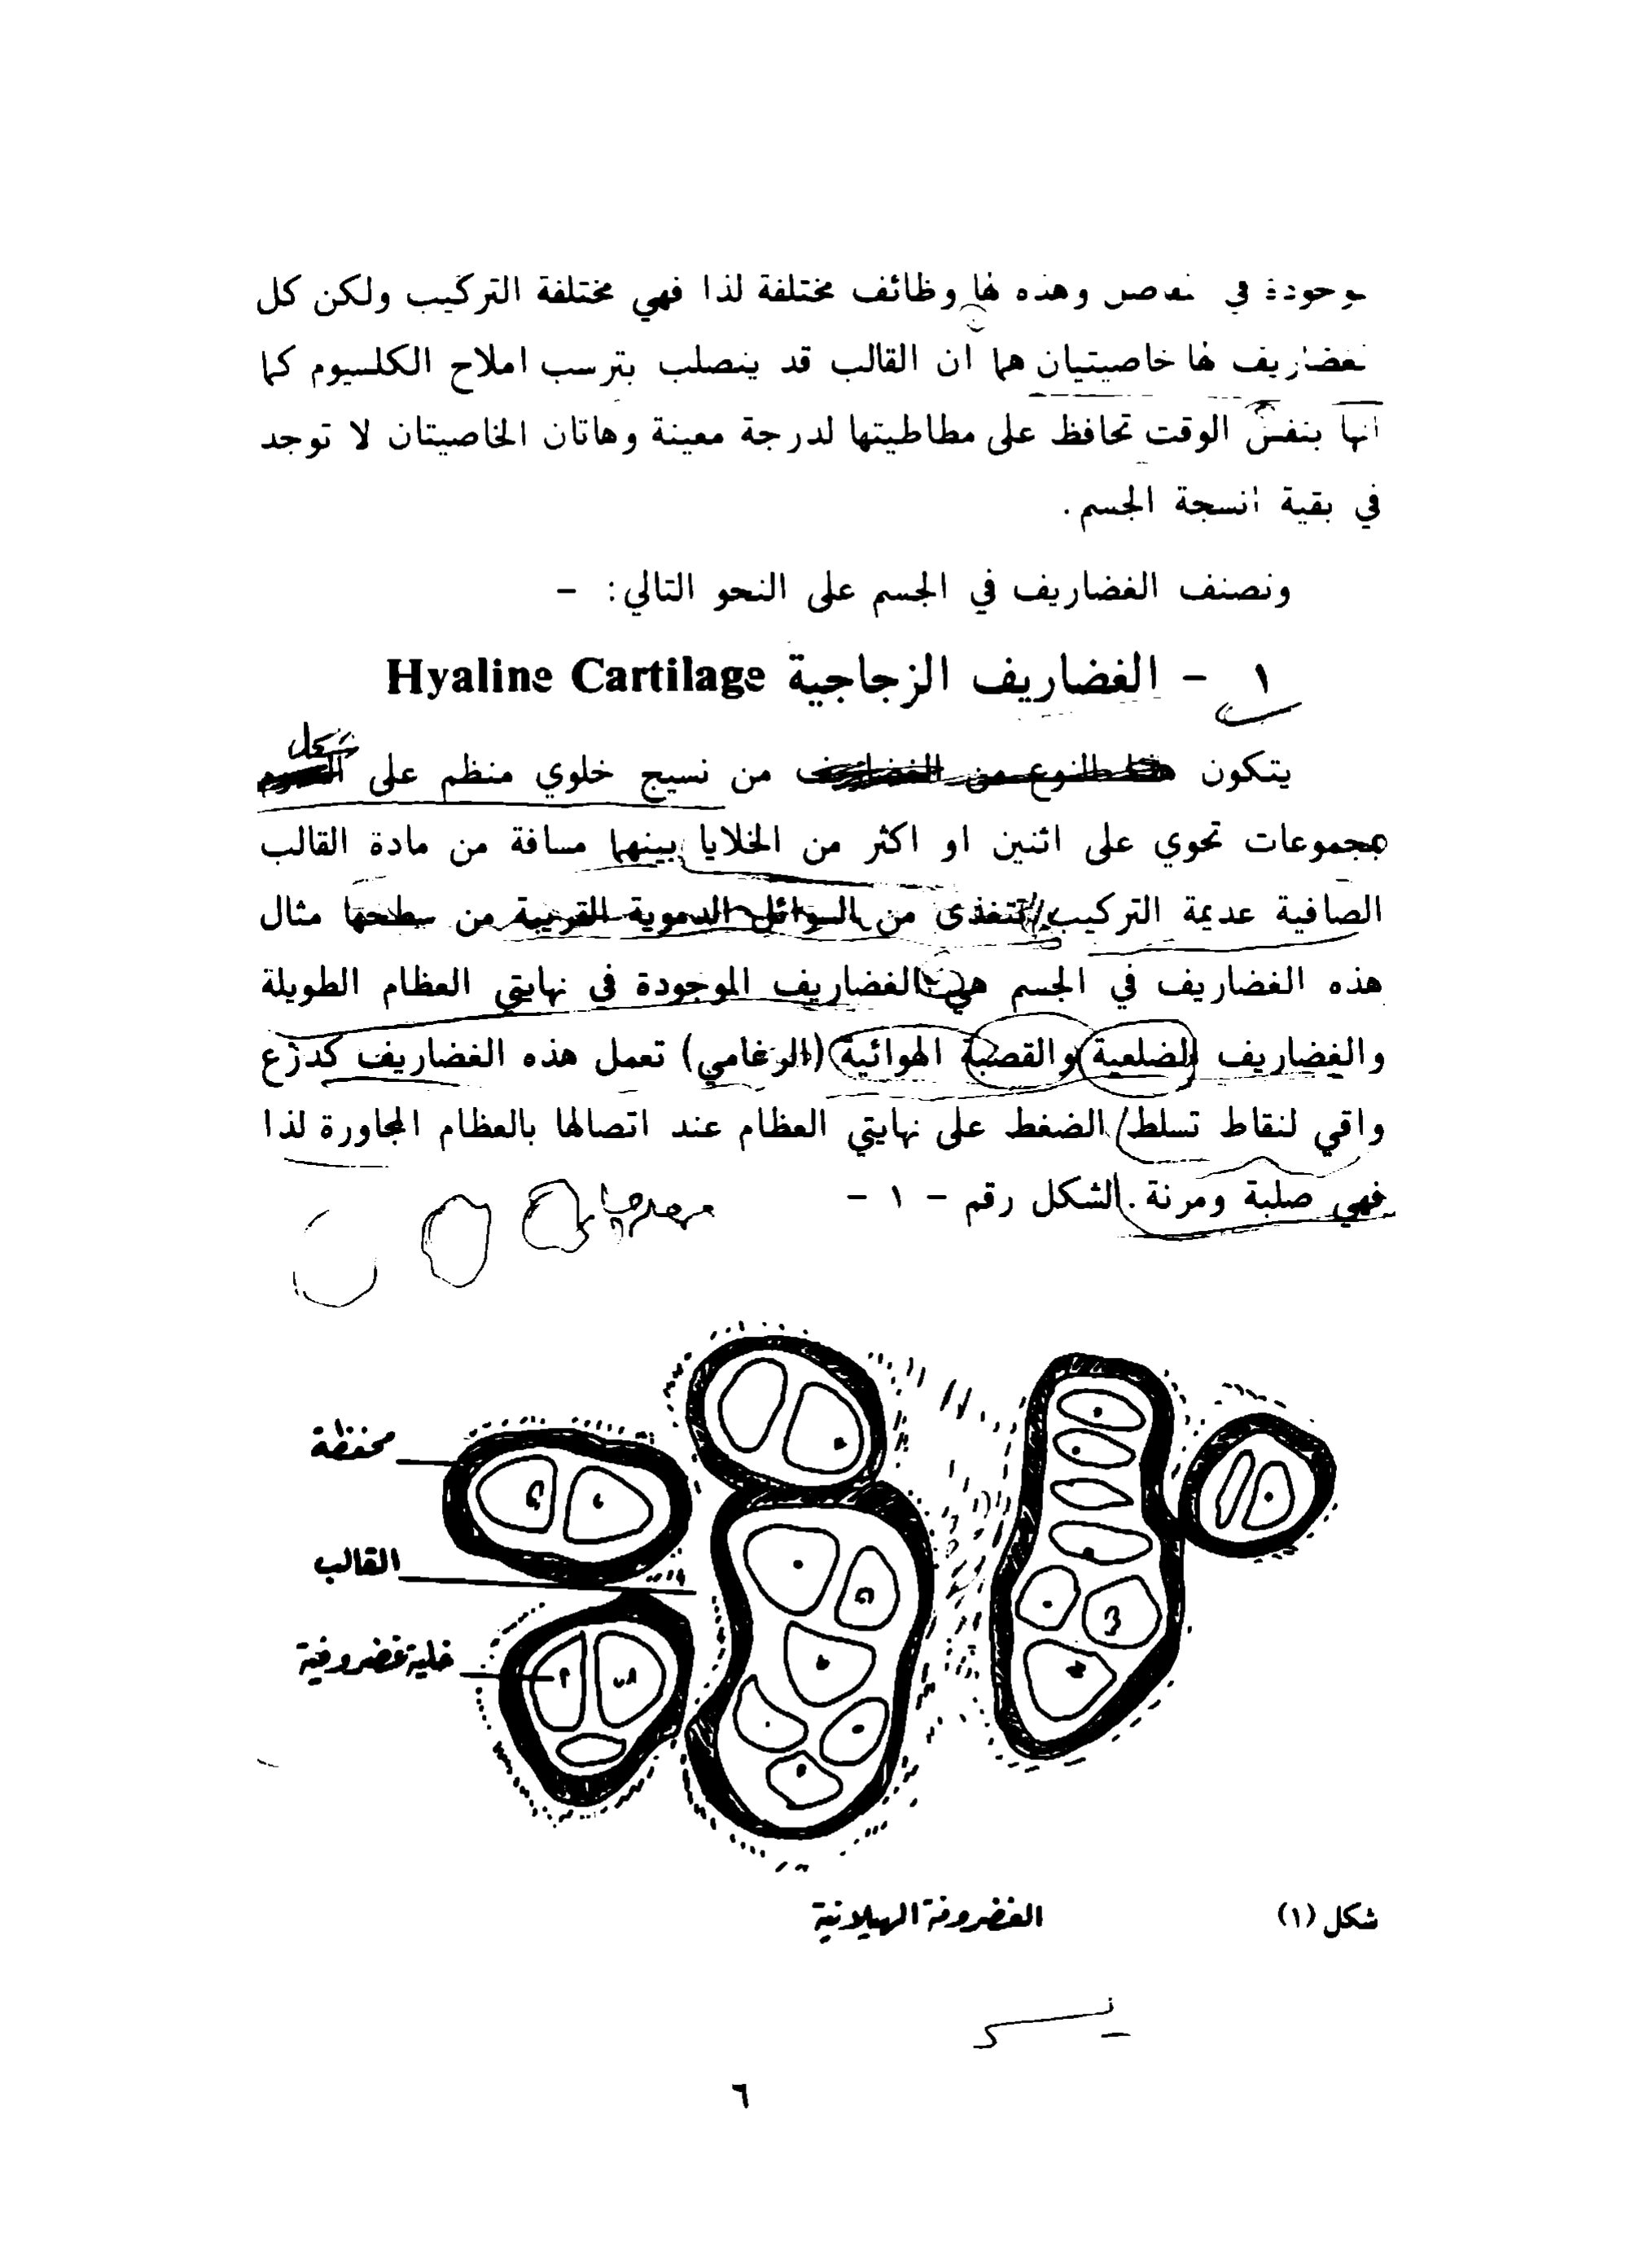 في وهذه لها وظائف مختلفة لذا فهي مختلفة التركيب ولكن كل
لها خاصيتيان هما ان القالب قد يتصلب بترسب املاح الكلسيوم كما
انها بنفس الوقت تحافظ على مطاطيتها لدرجة معينة وهاتان الخاصيتان لا توجد
في بقية انسجة الجسم .
ونصنف الغضاريف في الجسم على النحو التالي : -
١ - الغضاريف الزجاجية Hyaline Cartilage
شكل
يتكون هذا النوع من الغضاريف من نسيج خلوي منظم على
مجموعات تحوي على اثنين او اكثر من الخلايا بينهما مسافة من مادة القالب
الصافية عديمة التركيب تتغذى من السوائل الدموية القريبة من سطحها مثال
هذه الغضاريف في الجسم هي الغضاريف الموجودة في نهايتي العظام الطويلة
والغضاريف الضلعية والقصبة الهوائية (الرغامي) تعمل هذه الغضاريف كدرع
واقي لنقاط تسلط الضغط على نهايتي العظام عند اتصالها بالعظام المجاورة لذا
فهي صلبة ومرنة . الشكل رقم - ١ -
محفظة
القالب
خلية غضروفية
شكل (١) الغضروفة الهيلانية
٦